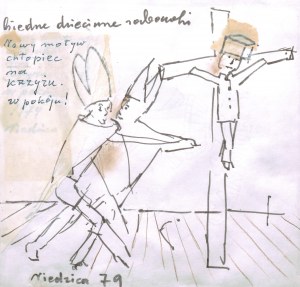 biedne dziecinne rachunki
Nowy motyw
chłopiec
na
krzyżu.
w pokoju!
Niedzica 79